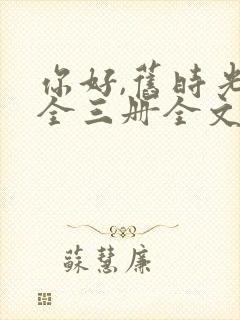 你好,舊時光
全三册全文
蘇慧廉